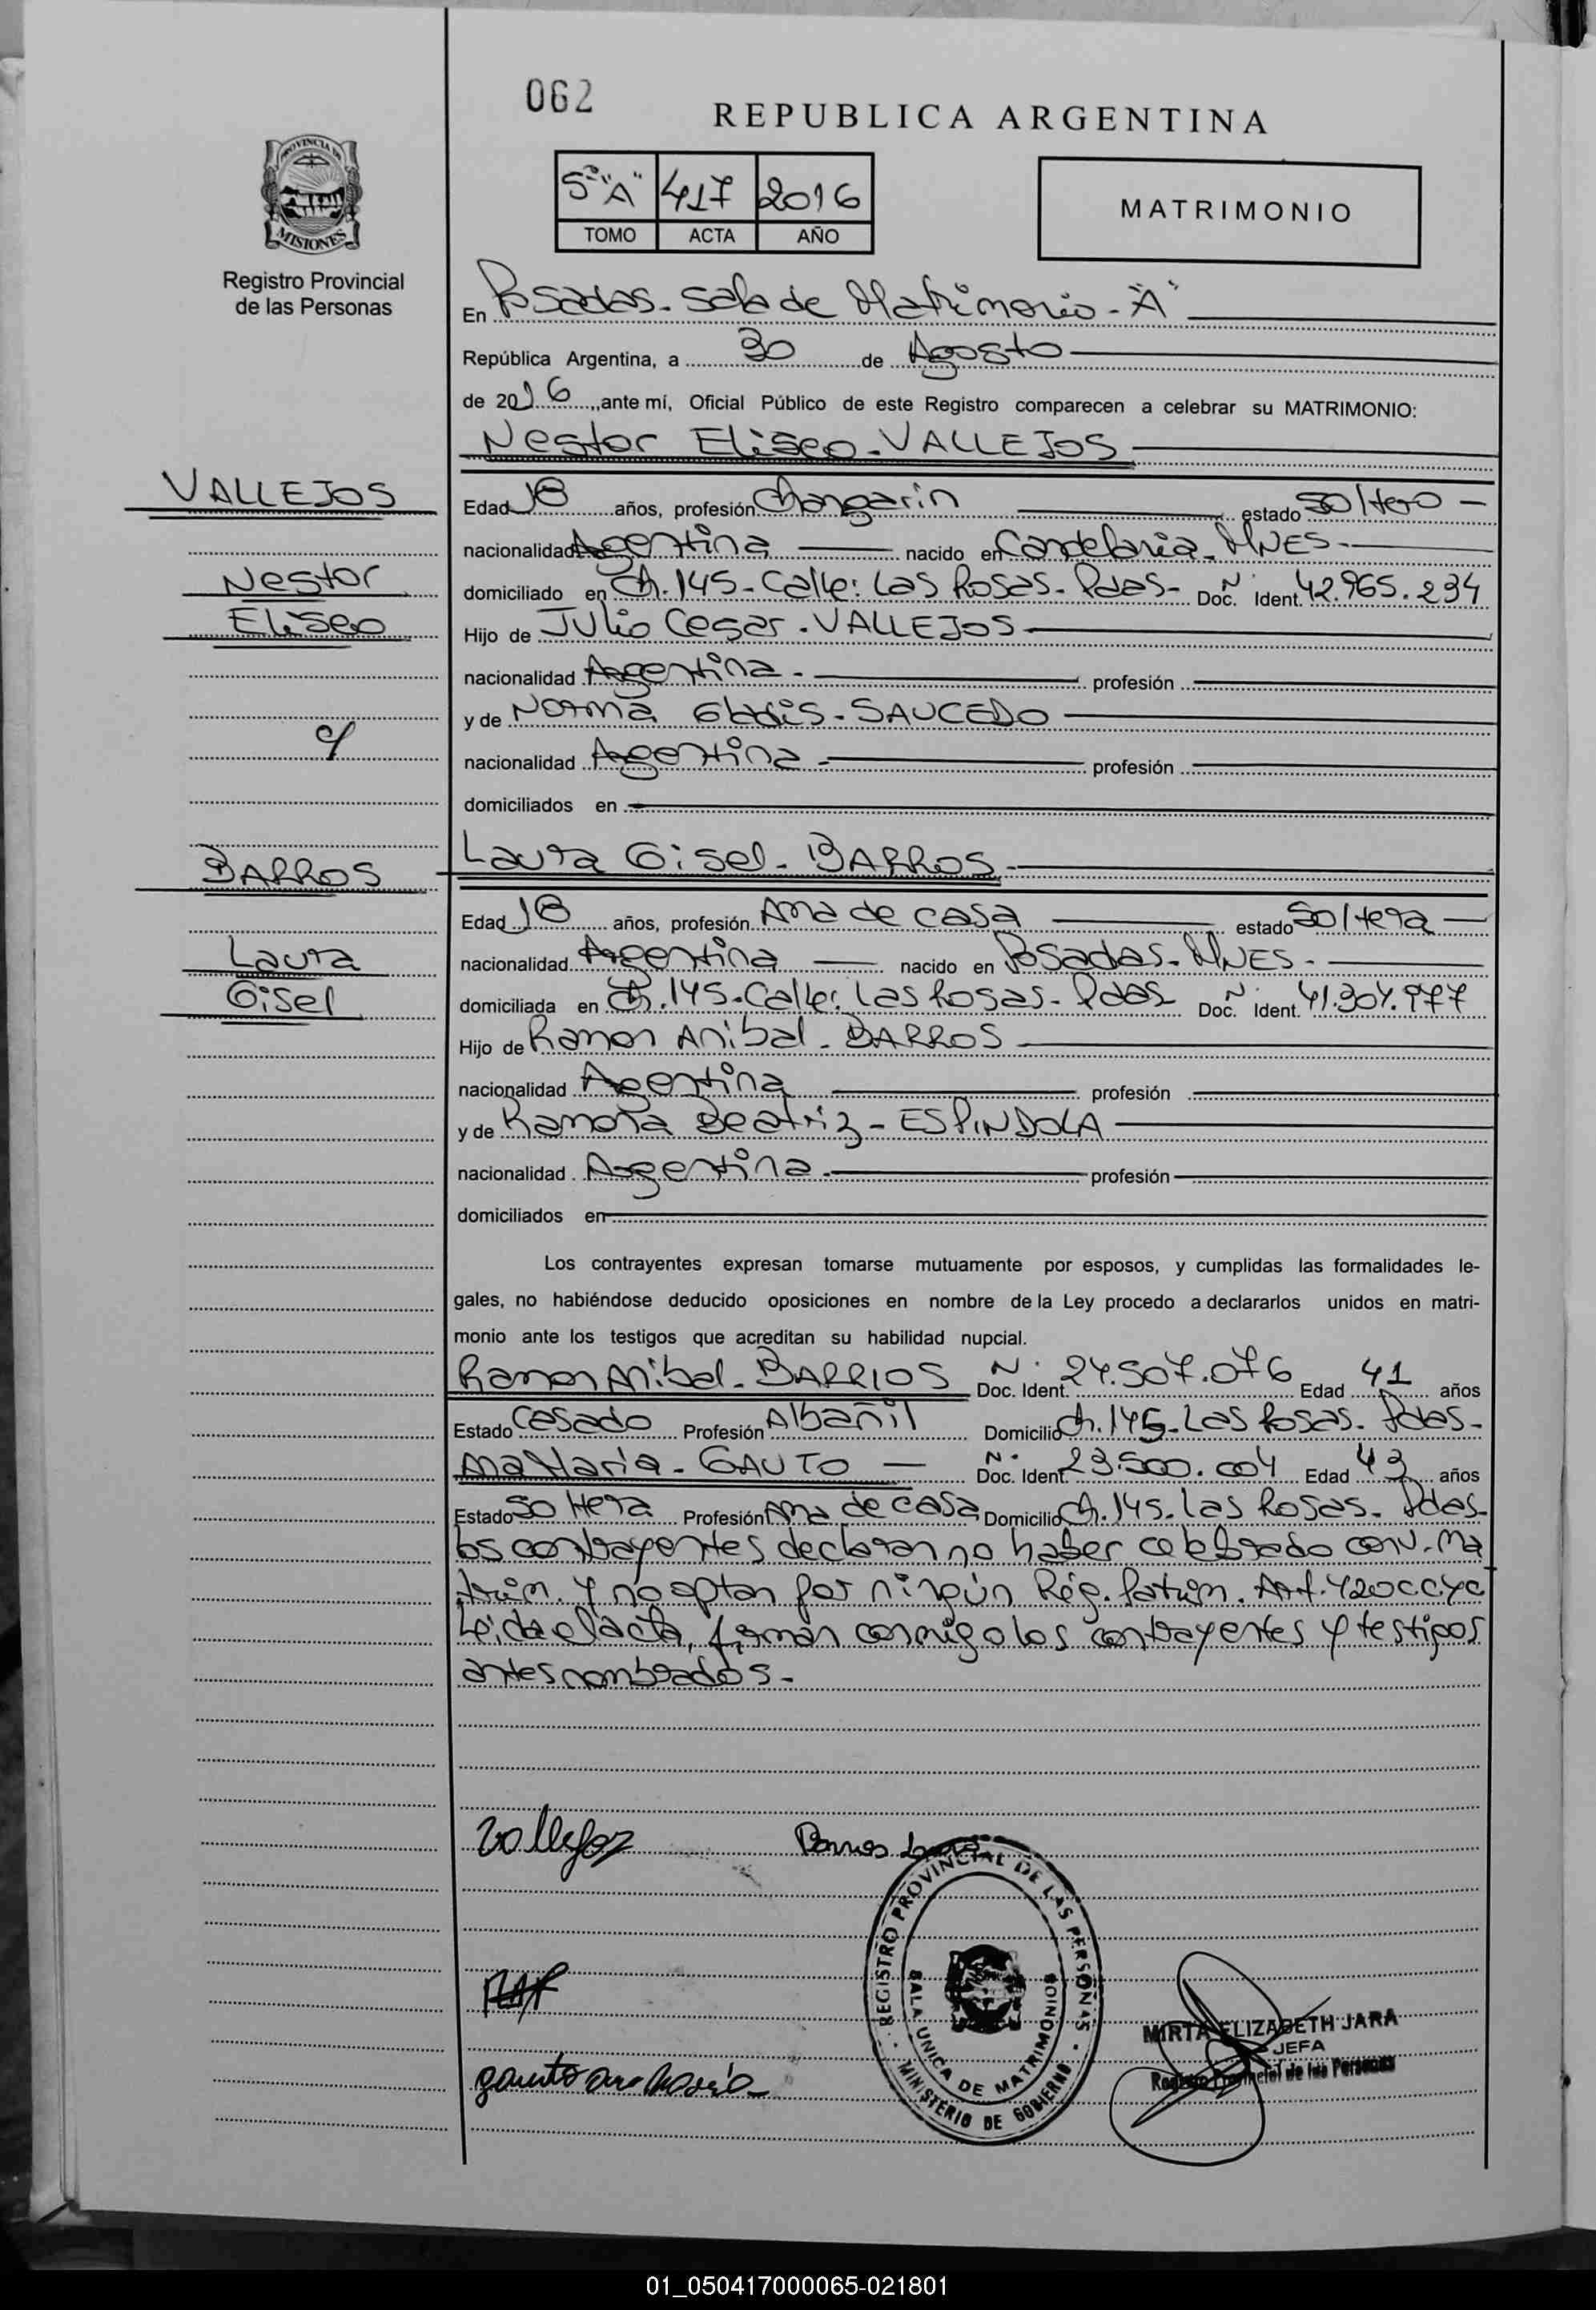 062
REPUBLICA ARGENTINA
PROVINCIA DE
MISIONES
Registro Provincial
de las Personas
5º "A" 417 2016
TOMO ACTA AÑO
MATRIMONIO
En Posadas - Sala de Matrimonio - "A"
República Argentina, a 30 de Agosto
de 2016, ante mí, Oficial Público de este Registro comparecen a celebrar su MATRIMONIO:
Nestor Eliseo - VALLEJOS
VALLEJOS
Nestor
Eliseo
c/
BARROS
Laura
Gisel
Edad 18 años, profesión Changarin estado Soltero -
nacionalidad Argentina nacido en Candelaria - MNES -
domiciliado en Ch. 145 - Calle: Las Rosas - Pdas - Doc. Nº Ident. 42.965.234
Hijo de Julio Cesar - VALLEJOS -
nacionalidad Argentina - profesión
y de Norma Gladis - SAUCEDO
nacionalidad Argentina - profesión
domiciliados en
Laura Gisel - BARROS -
Edad 18 años, profesión Ama de casa estado Soltera
nacionalidad Argentina nacido en Posadas - MNES -
domiciliada en Ch. 145 - Calle: Las Rosas - Pdas Doc. Nº Ident. 41.304.977
Hijo de Ramon Anibal - BARROS
nacionalidad Argentina profesión
y de Ramona Beatriz - ESPINDOLA
nacionalidad Argentina - profesión
domiciliados en
Los contrayentes expresan tomarse mutuamente por esposos, y cumplidas las formalidades le-
gales, no habiéndose deducido oposiciones en nombre de la Ley procedo a declararlos unidos en matri-
monio ante los testigos que acreditan su habilidad nupcial.
Ramon Anibal - BARRIOS Nº Doc. Ident. 24.507.076 Edad 41 años
Estado Casado Profesión Albañil Domicilio Ch. 145 - Las Rosas - Pdas -
Ana María - GAUTO - Nº Doc. Ident. 23.500.004 Edad 43 años
Estado Soltera Profesión Ama de casa Domicilio Ch. 145 - Las Rosas - Pdas -
los contrayentes declaran no haber celebrado conv. Ma
trim. y no optan por ningún Rég. Patrim. Art. 420 CCYC
Leida el acta, firman conmigo los contrayentes y testigos
antes nombrados -
Vallejoz
Barros Laura
REGISTRO PROVINCIAL DE LAS PERSONAS
SALA UNICA DE MATRIMONIOS
MINISTERIO DE GOBIERNO
MIRTA ELIZABETH JARA
JEFA
Registro Provincial de las Personas
gauto ana maría
01_050417000065-021801